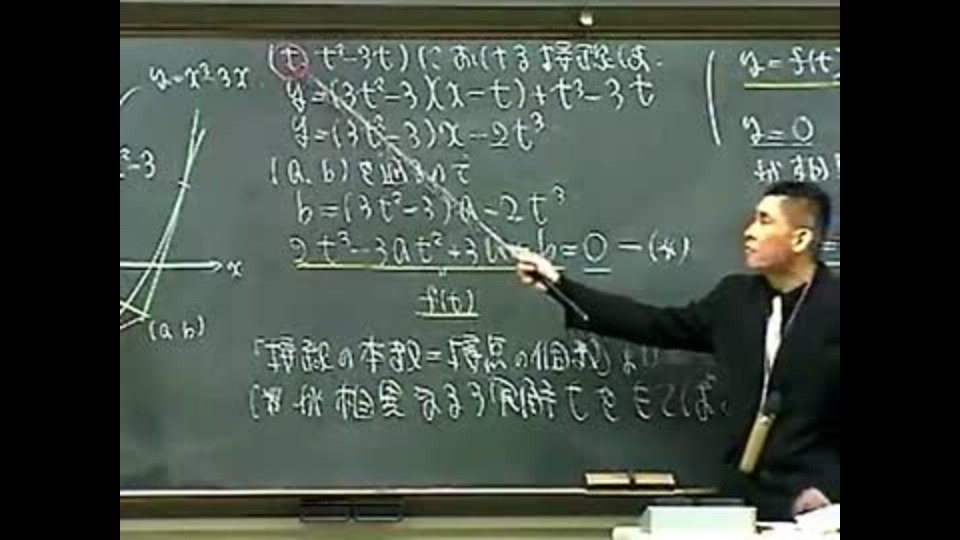 y=x³-3x
²-3
x
(a,b)
(t, t³-3t)における接線は、
y=(3t²-3)(x-t)+t³-3t
y=(3t²-3)x-2t³
(a,b)を通るので
b=(3t²-3)a-2t³
2t³-3at²+3a+b=0-(*)
f(t)
「接線の本数=接点の個数」より
(*)が相異なる3実解tをもてば、
y=f(t)
y=0
が